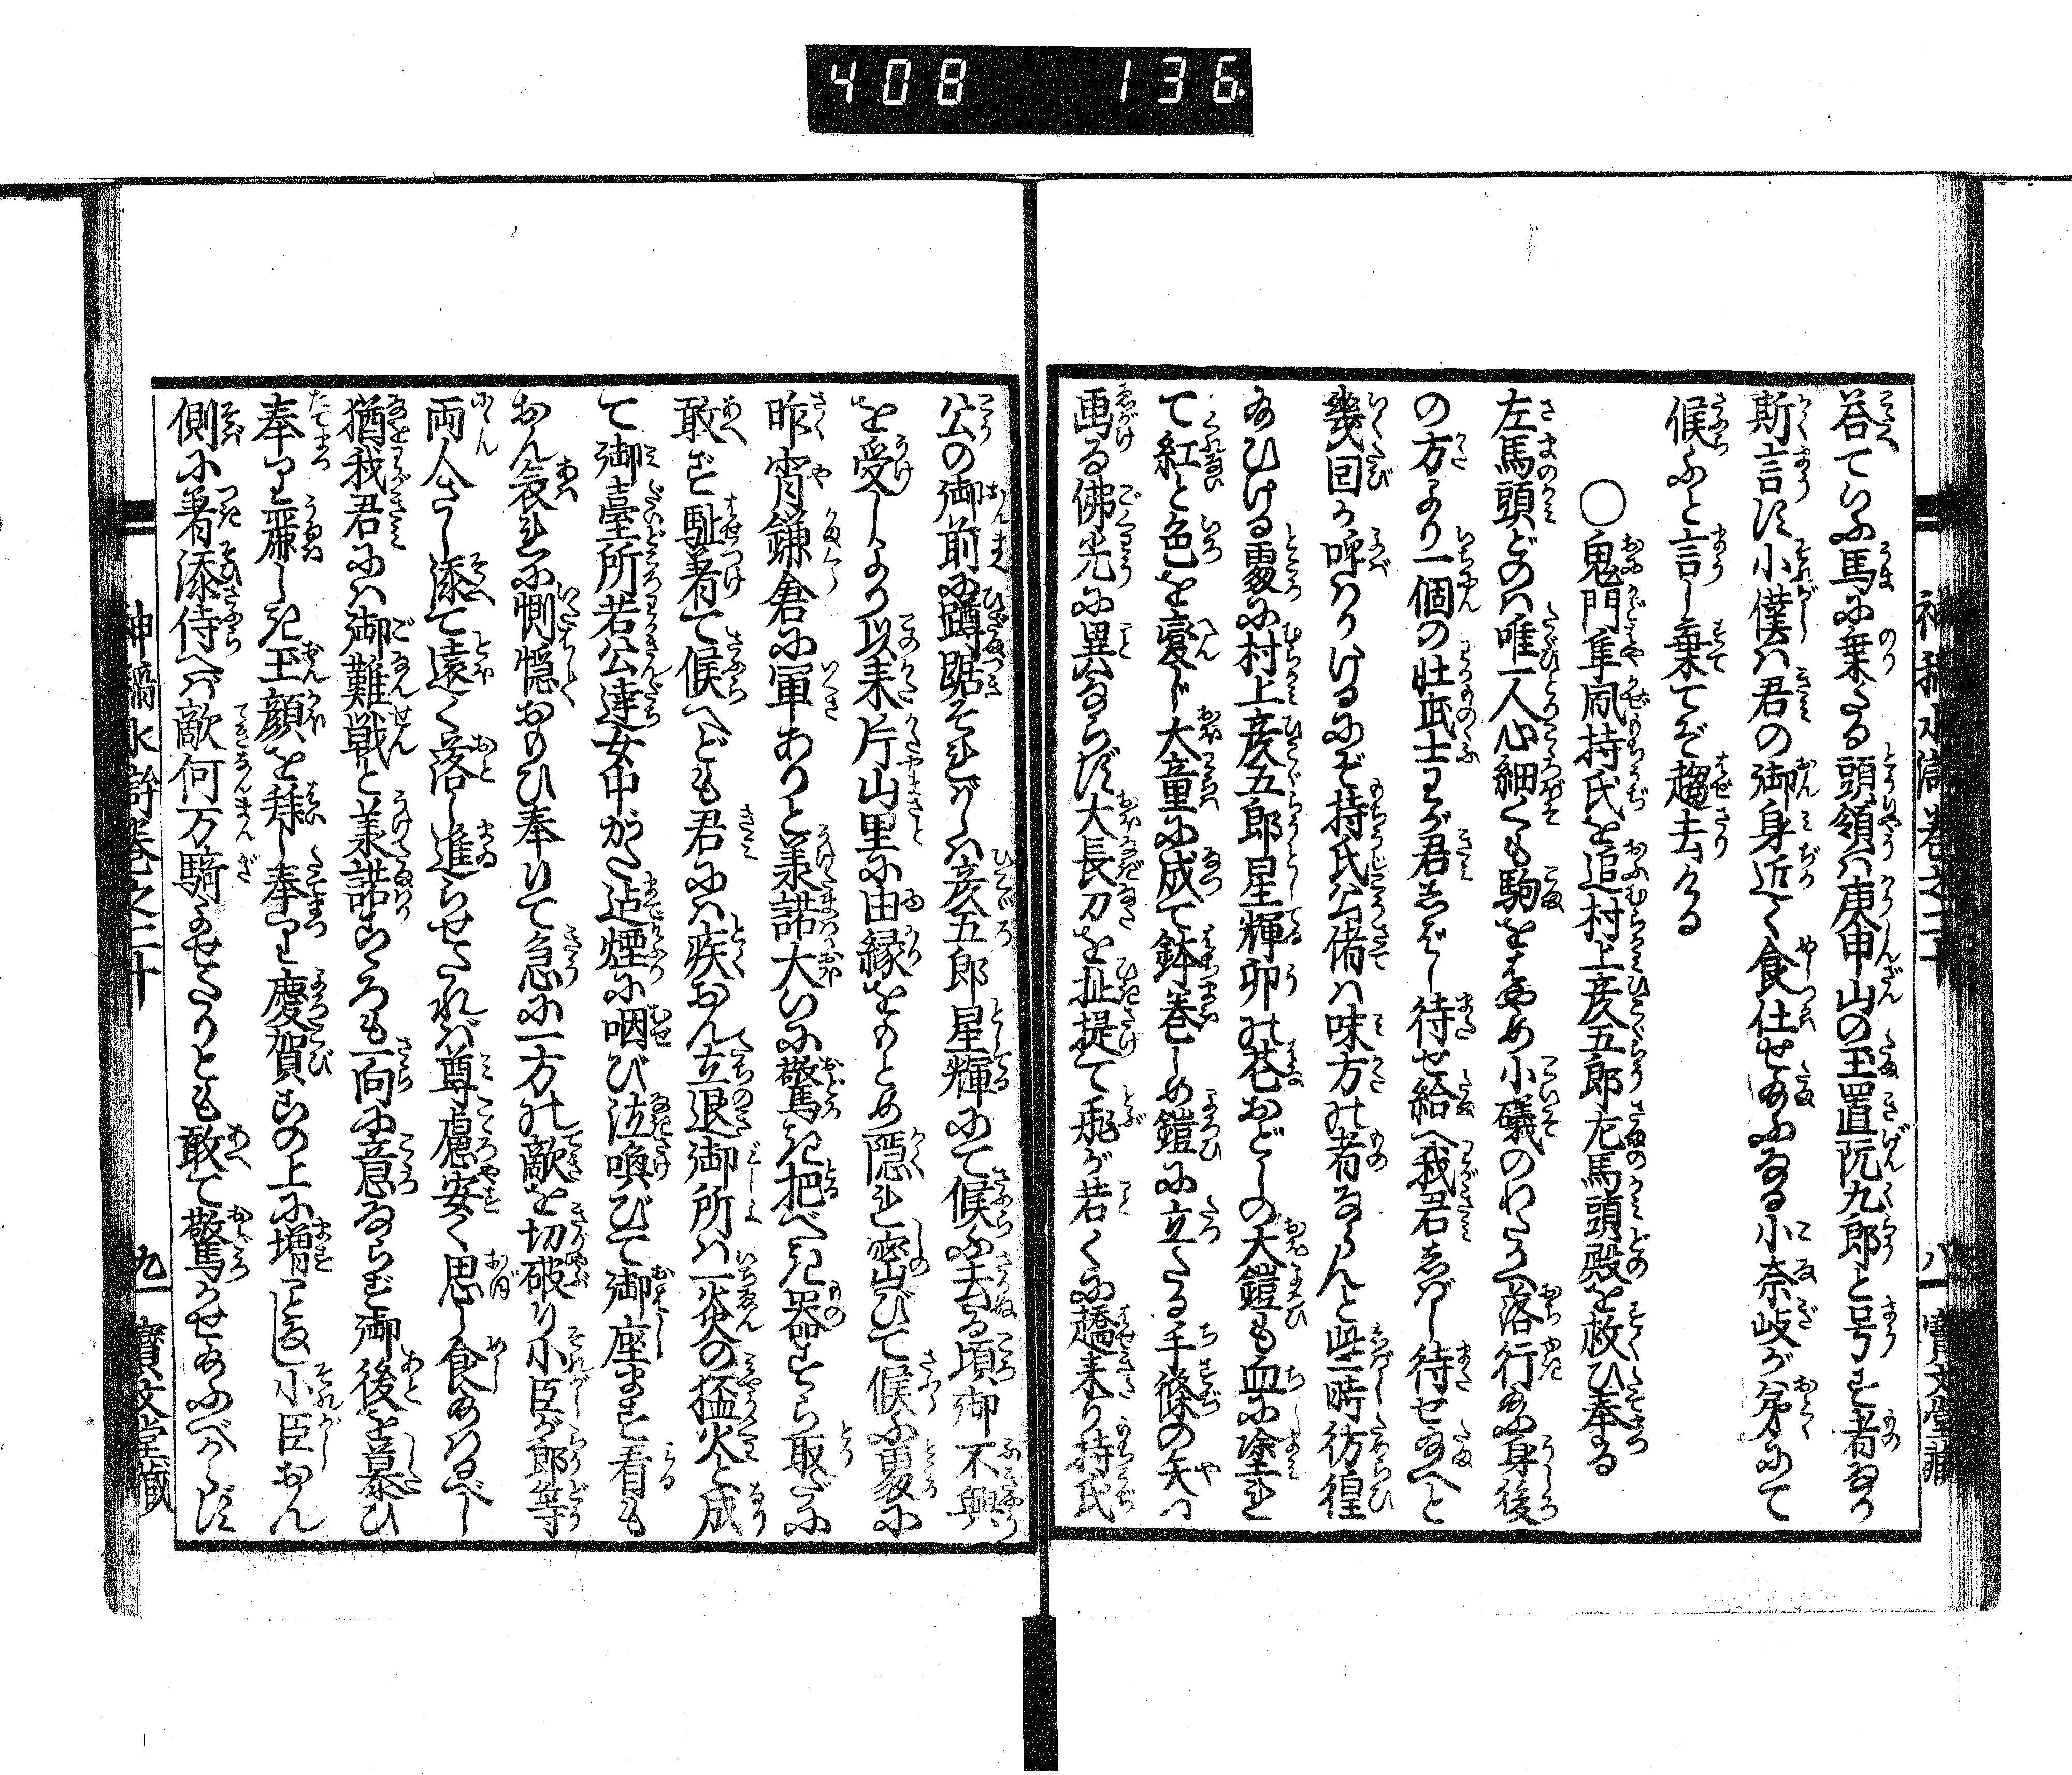 408 136
神稲水滸巻之二十 八 寶文堂藏
答ていふ馬に乗たる頭領は庚申山の玉置阮九郎と号す者なり
斯言す小僕は君の御身近く食仕せ給ふなる小奈岐が弟にて
候ふと言し棄てぞ趨去ける
○鬼門隼風持氏を追村上彦五郎左馬頭殿を救ひ奉る
左馬頭どのは唯一人心細くも駒をはやめ小礒のわたりへ落行給ふ身後
の方より一個の壮武士わが君しばし待せ給へ我君しばし待せ給へと
幾回か呼はりけるにぞ持氏公偖は味方の者ならんと暫時彷徨
給ひける処に村上彦五郎星輝卯の花おどしの大鎧も血に塗れ
て紅と色を変じ大童に成て鉢巻しめ鎧に立たる手條の矢は
画る佛光に異ならず大長刀を扯提て飛が若くに趫来り持氏
公の御前に蹲踞それがしは彦五郎星輝にて候ふ去る頃御不興
を受しより以来片山里に由縁をもとめ隠れ密びて候ふ処に
昨宵鎌倉に軍ありと羕諾大いに驚き把べき器すら取だに
敢ず駈着て候へども君には疾おん立退御所は一炎の猛火と成
て御臺所若公達女中がた迠煙に咽び泣喚びて御座ます看も
おん哀れに惻隠おもひ奉りて急に一方の敵を切破り小臣が郎等
両人さし添て遠く落し進らせたれば尊慮安く思し食給はるべし
猶我君には御難戦と羕諾こゝろも一向に意ならず御後を慕ひ
奉りて麻しき玉顔を拜し奉りて慶賀この上に増ことなし小臣おん
側に着添侍へば敵何万騎よせたりとも敢て驚かせ給ふべからず
神稲水滸巻之二十 九 寶文堂藏